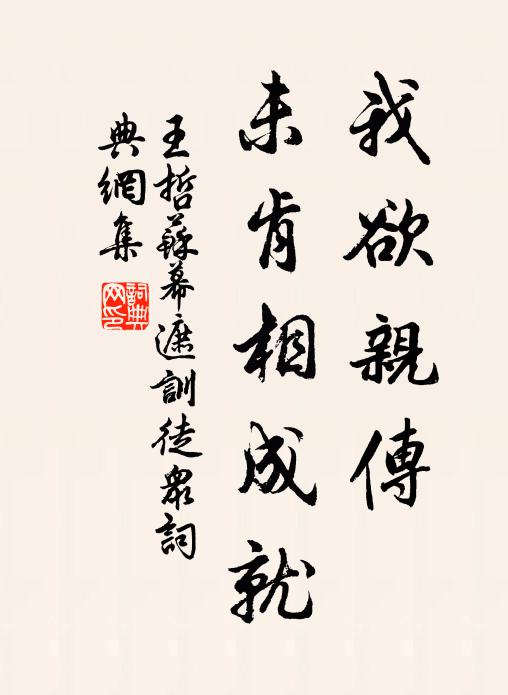 我欲親傳
未肯相成就
王哲蘇幕遮訓徒衆詞
典網集
詞典网印